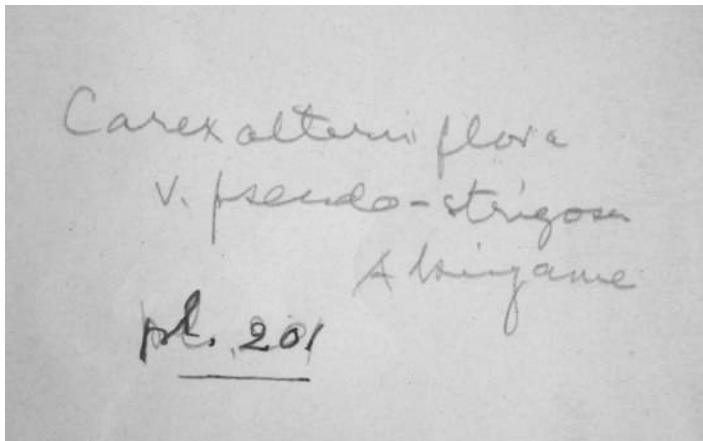 Carex alterniflora
v. pseudo-strigosa
pl. 201